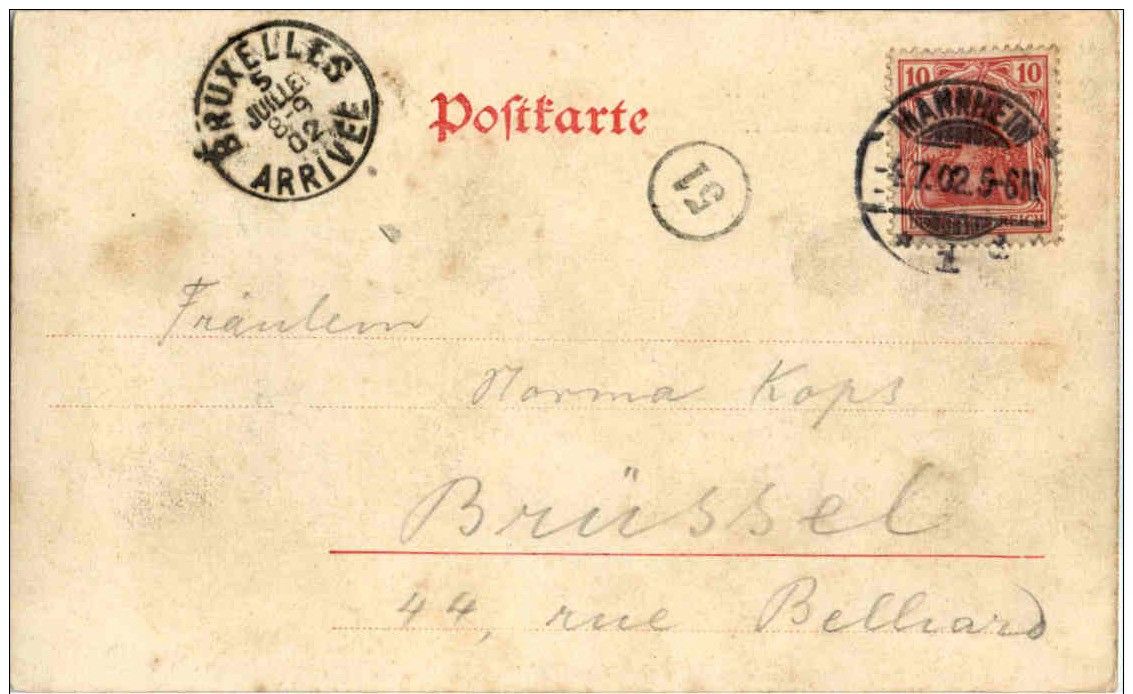 BRUXELLES
5
JUILLET
8-9
02
ARRIVÉE
Postkarte
10 10
MANNHEIM
7.02. 5-6N
* 1 *
REICH
51
Fräulein
Norma Kops
Brüssel
44, rue Belliard